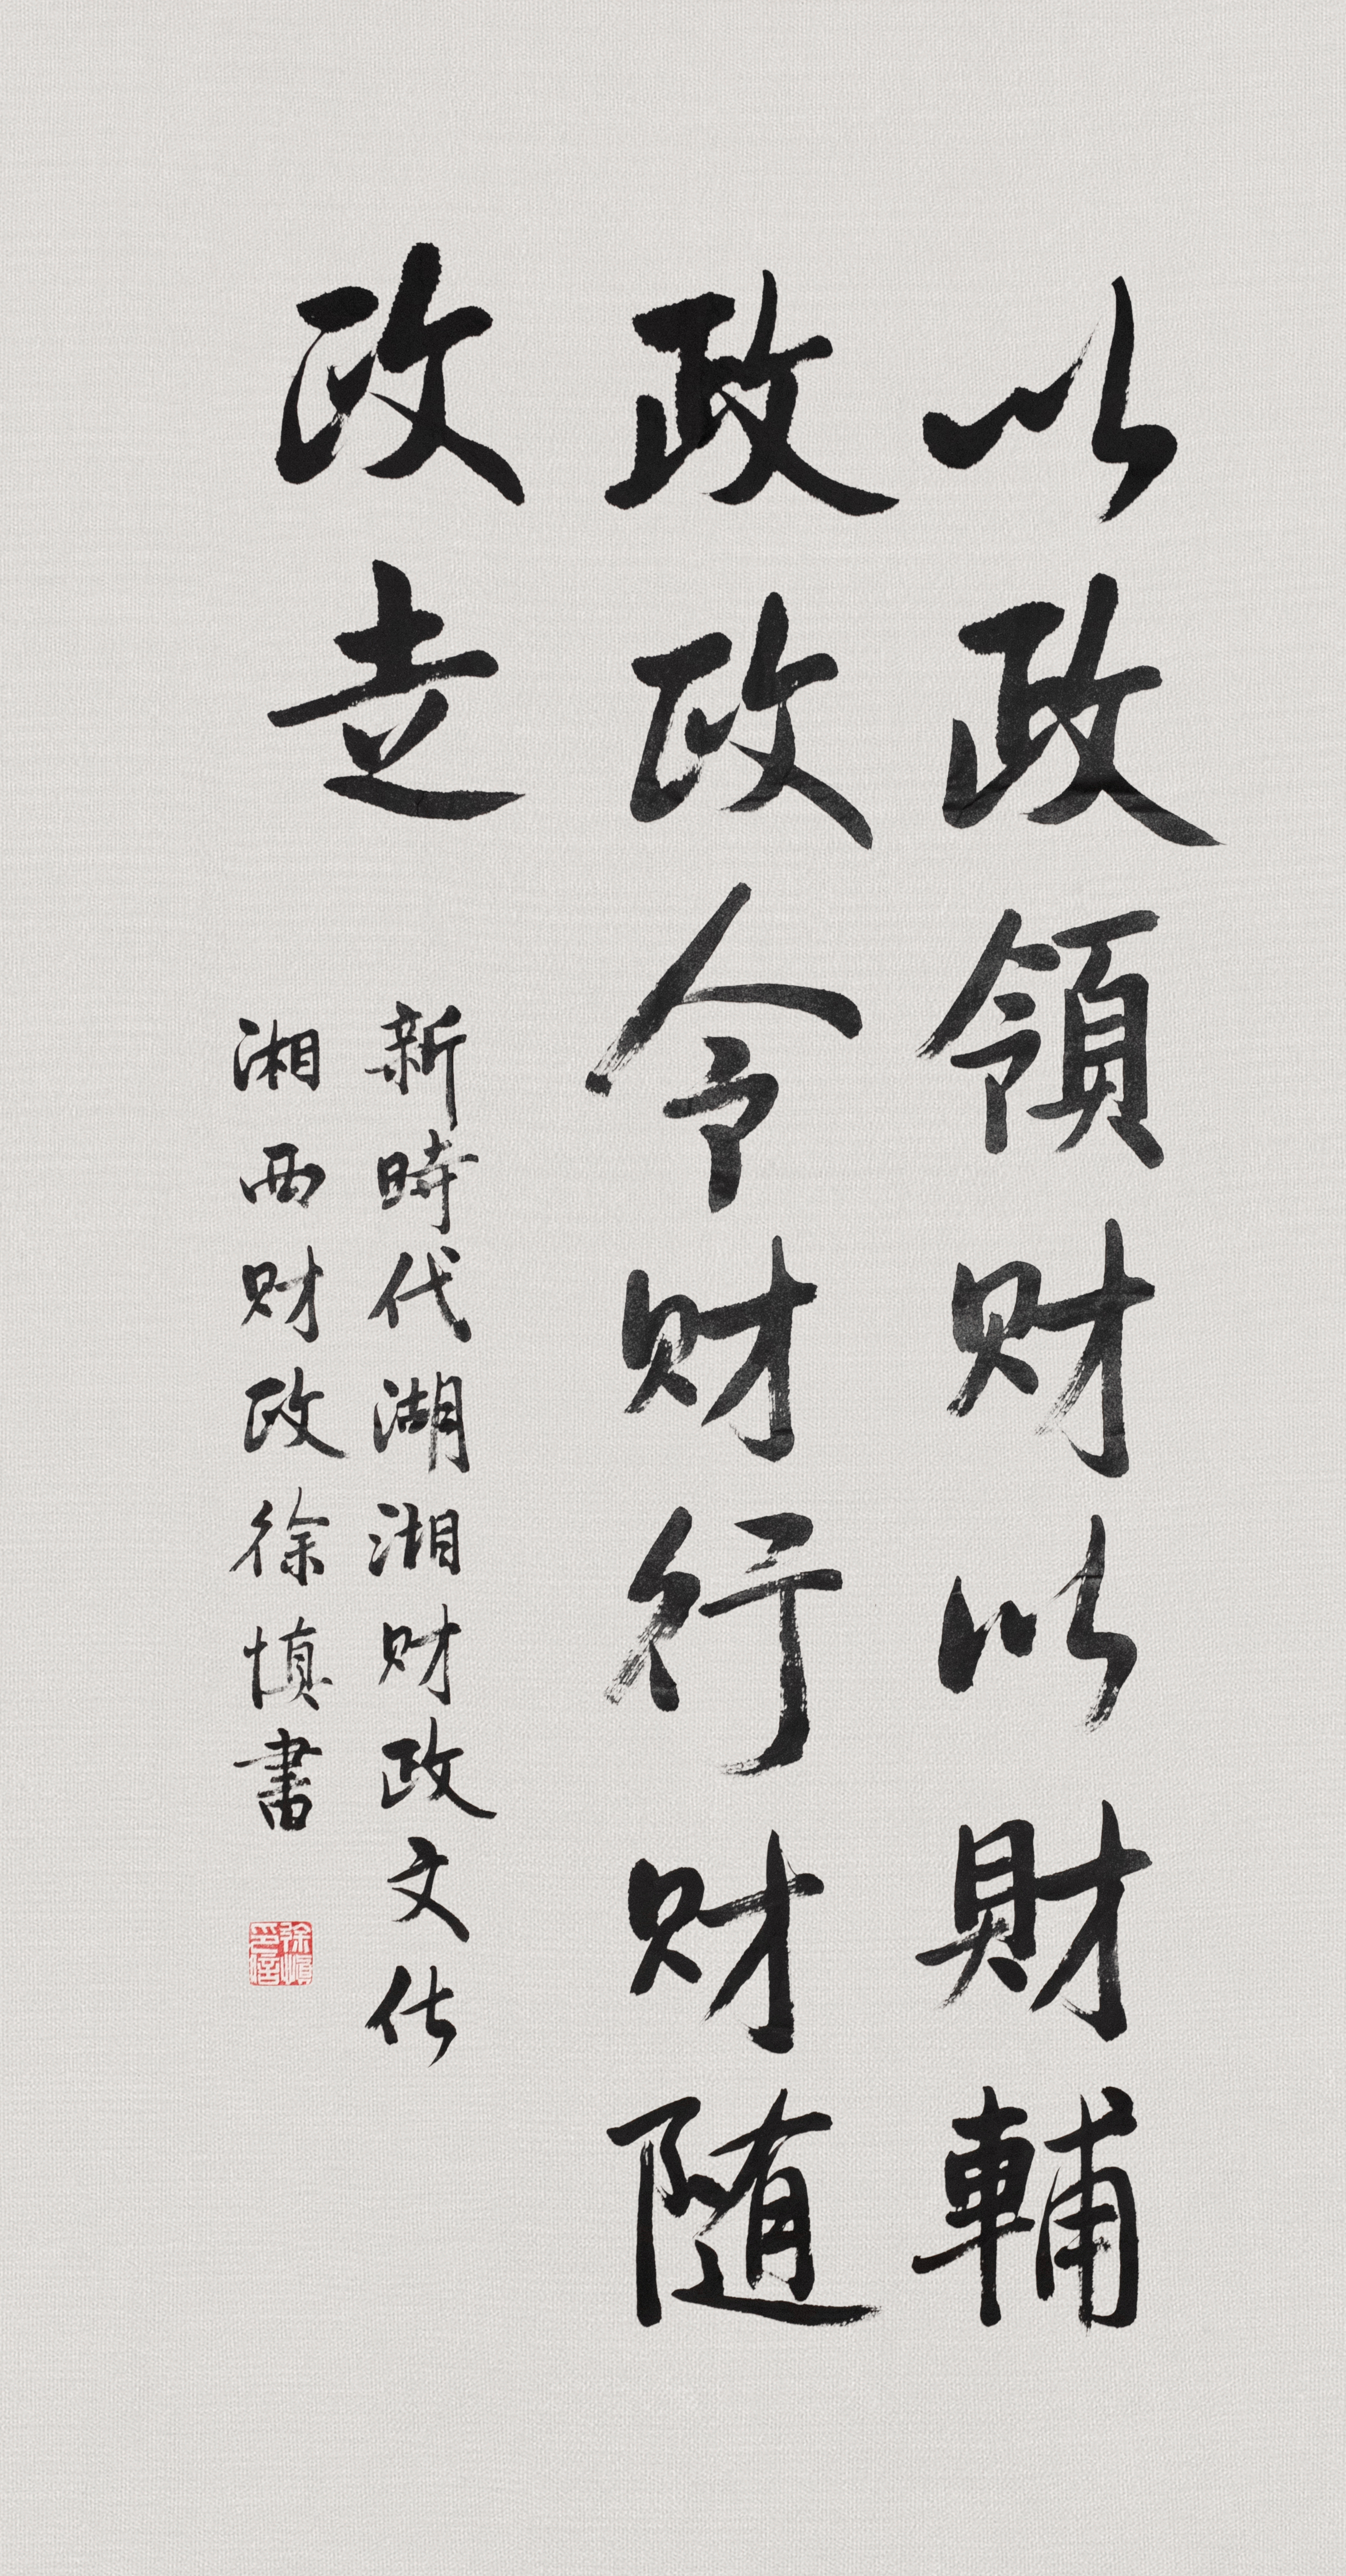 以政領财以財輔
政政令财行财随
政走
新時代湖湘财政文化
湘西财政徐慎書
徐慎印信